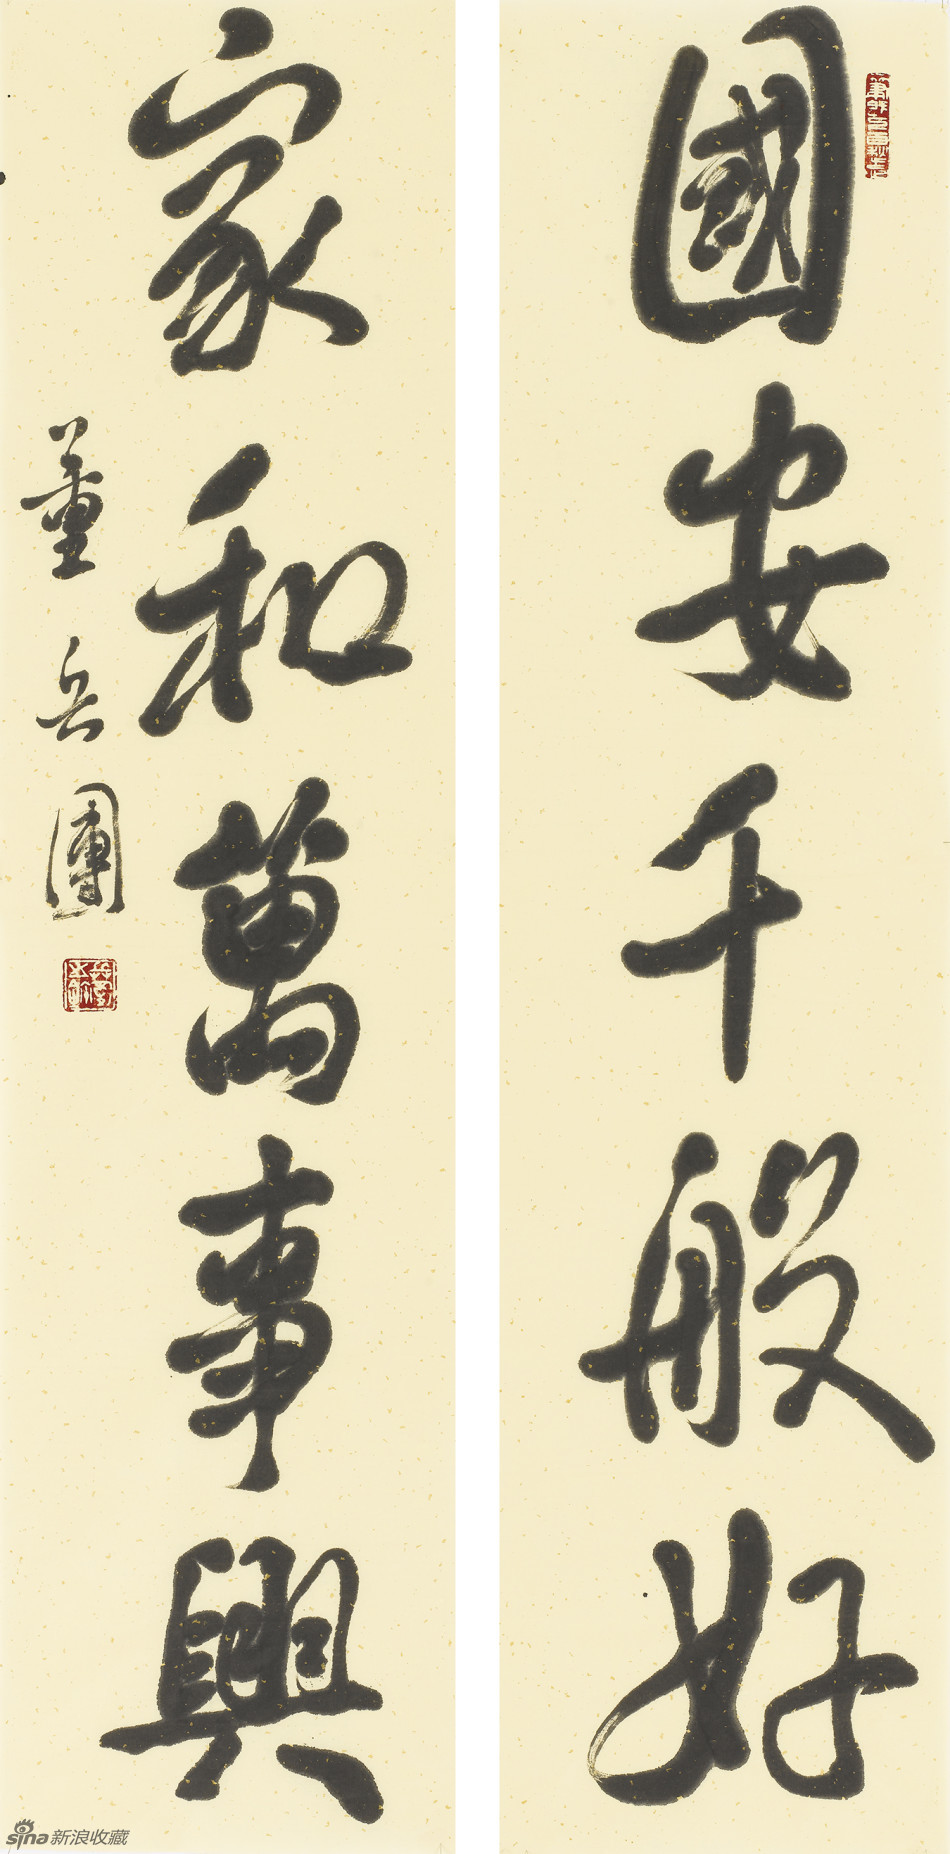 國安千般好
家和萬事興
董岳團
sina新浪收藏